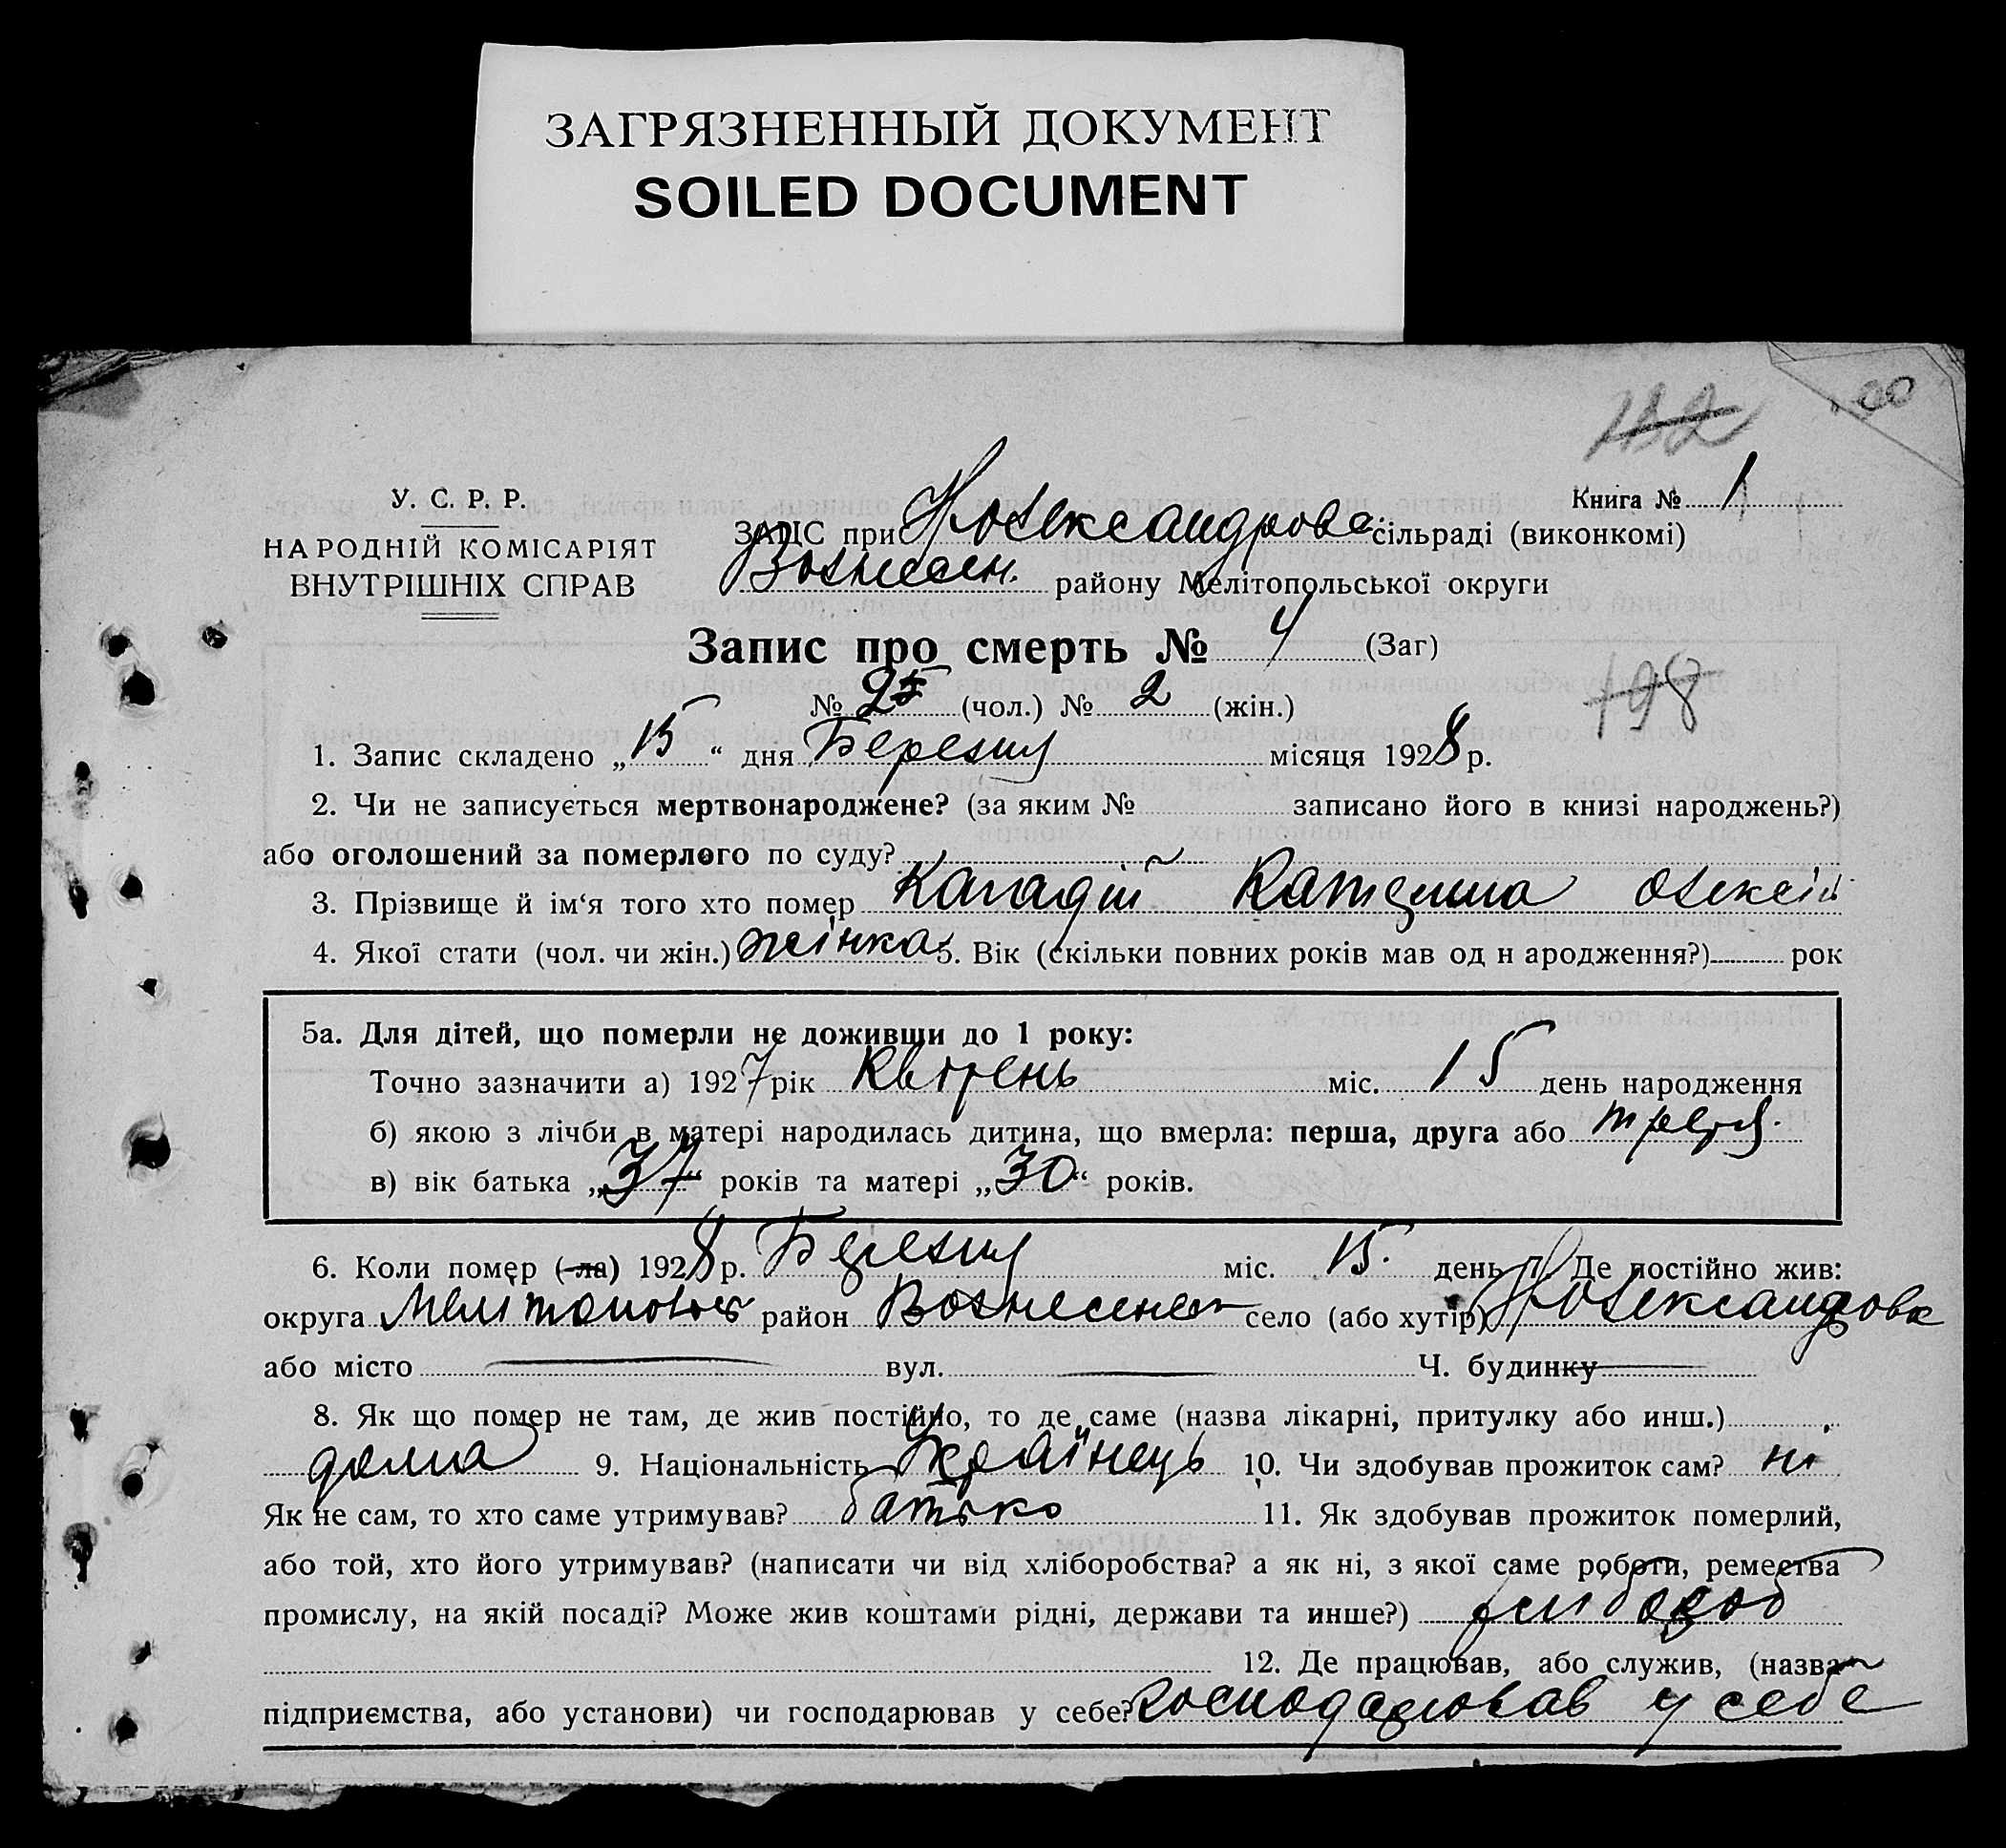 ЗАГРЯЗНЕННЫЙ ДОКУМЕНТ
SOILED DOCUMENT
182
Книга № 1
У. С. Р. Р.
НАРОДНІЙ КОМІСАРІЯТ
ВНУТРІШНІХ СПРАВ
ЗАЦС при сільраді (виконкомі)
Вознесен. району Мелітопольської округи
Запис про смерть № 4 (Заг)
№ (чол.) № 2 (жін.)
198
1. Запис складено „15“ дня Березня місяця 1928 р.
2. Чи не записується мертвонароджене? (за яким № записано його в книзі народжень?)
або оголошений за померлого по суду?
3. Прізвище й ім‘я того хто помер Катерина Олексій
4. Якої стати (чол. чи жін.) жінка 5. Вік (скільки повних років мав од н ародження?) рок
5а. Для дітей, що померли не доживши до 1 року:
Точно зазначити а) 1927 рік Квітень міс. 15 день народження
б) якою з лічби в матері народилась дитина, що вмерла: перша, друга або третя.
в) вік батька „37“ років та матері „30“ років.
6. Коли помер (-ла) 1928 р. Березня міс. 15. день 7. Де постійно жив:
округа район Вознесенськ село (або хутір)
або місто вул. Ч. будинку
8. Як що помер не там, де жив постійно, то де саме (назва лікарні, притулку або инш.)
дома 9. Національність Українець 10. Чи здобував прожиток сам? ні
Як не сам, то хто саме утримував? батько 11. Як здобував прожиток померлий,
або той, хто його утримував? (написати чи від хліборобства? а як ні, з якої саме роботи, ремества
промислу, на якій посаді? Може жив коштами рідні, держави та инше?) хлібороб
12. Де працював, або служив, (назва
підприємства, або установи) чи господарював у себе? Господарював у себе